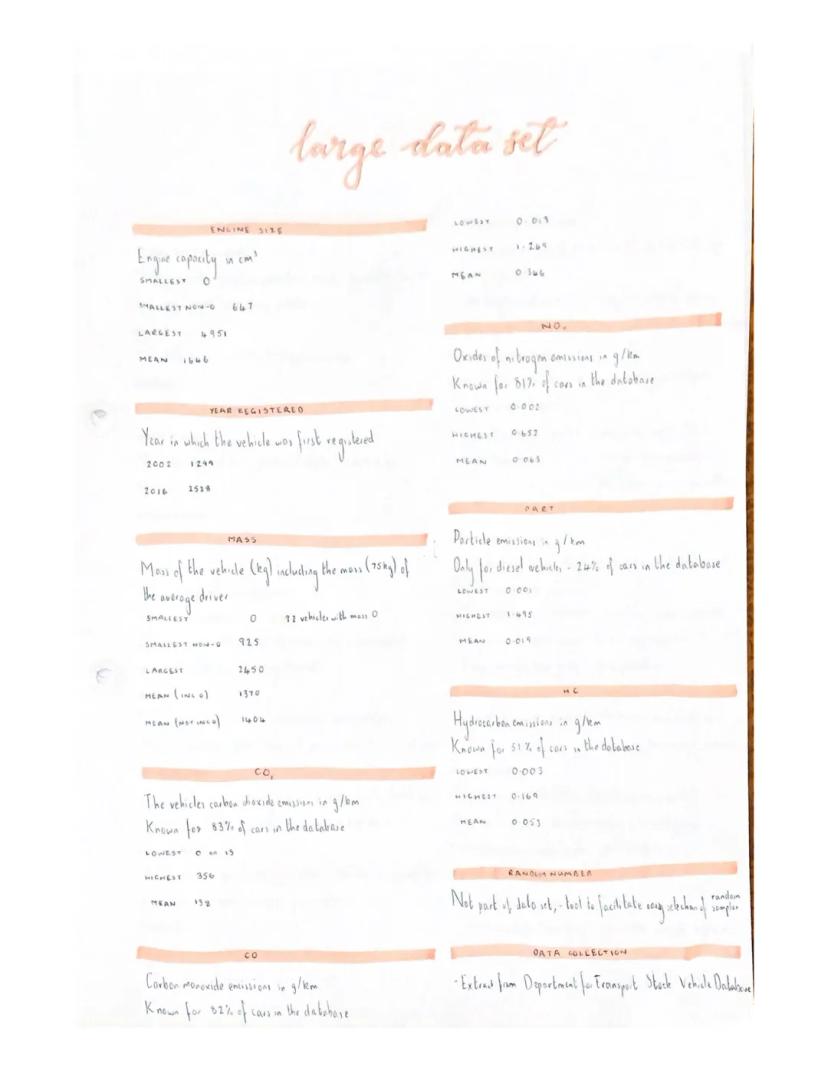 large data set
ENGINE SIZE
Engine capacity in cm³
SMALLEST 0
SMALLEST NON-0 647
LARGEST 4951
MEAN 1646
YEAR REGISTERED
Year in which the vehicle was first registered
2002 1299
2016 2528
MASS
Mass of the vehicle (kg) including the mass (75kg) of
the average driver
SMALLEST 0 22 vehicles with mass 0
SMALLEST NON-0 925
LARGEST 2650
MEAN (INC 0) 1370
MEAN (NOT INC 0) 1404
CO₂
The vehicles carbon dioxide emissions in g/km
Known for 83% of cars in the database
LOWEST 0 or 13
HIGHEST 356
MEAN 138
CO
Carbon monoxide emissions in g/km
Known for 82% of cars in the database
LOWEST 0.013
HIGHEST 1.269
MEAN 0.366
NOₓ
Oxides of nitrogen emissions in g/km
Known for 81% of cars in the database
LOWEST 0.002
HIGHEST 0.652
MEAN 0.063
PART
Particle emissions in g/km
Only for diesel vehicles - 24% of cars in the database
LOWEST 0.001
HIGHEST 1.695
MEAN 0.019
HC
Hydrocarbon emissions in g/km
Known for 51% of cars in the database
LOWEST 0.003
HIGHEST 0.169
MEAN 0.053
RANDOM NUMBER
Not part of data set, - tool to facilitate easy selection of random samples
DATA COLLECTION
· Extract from Department for Transport Stock Vehicle Database